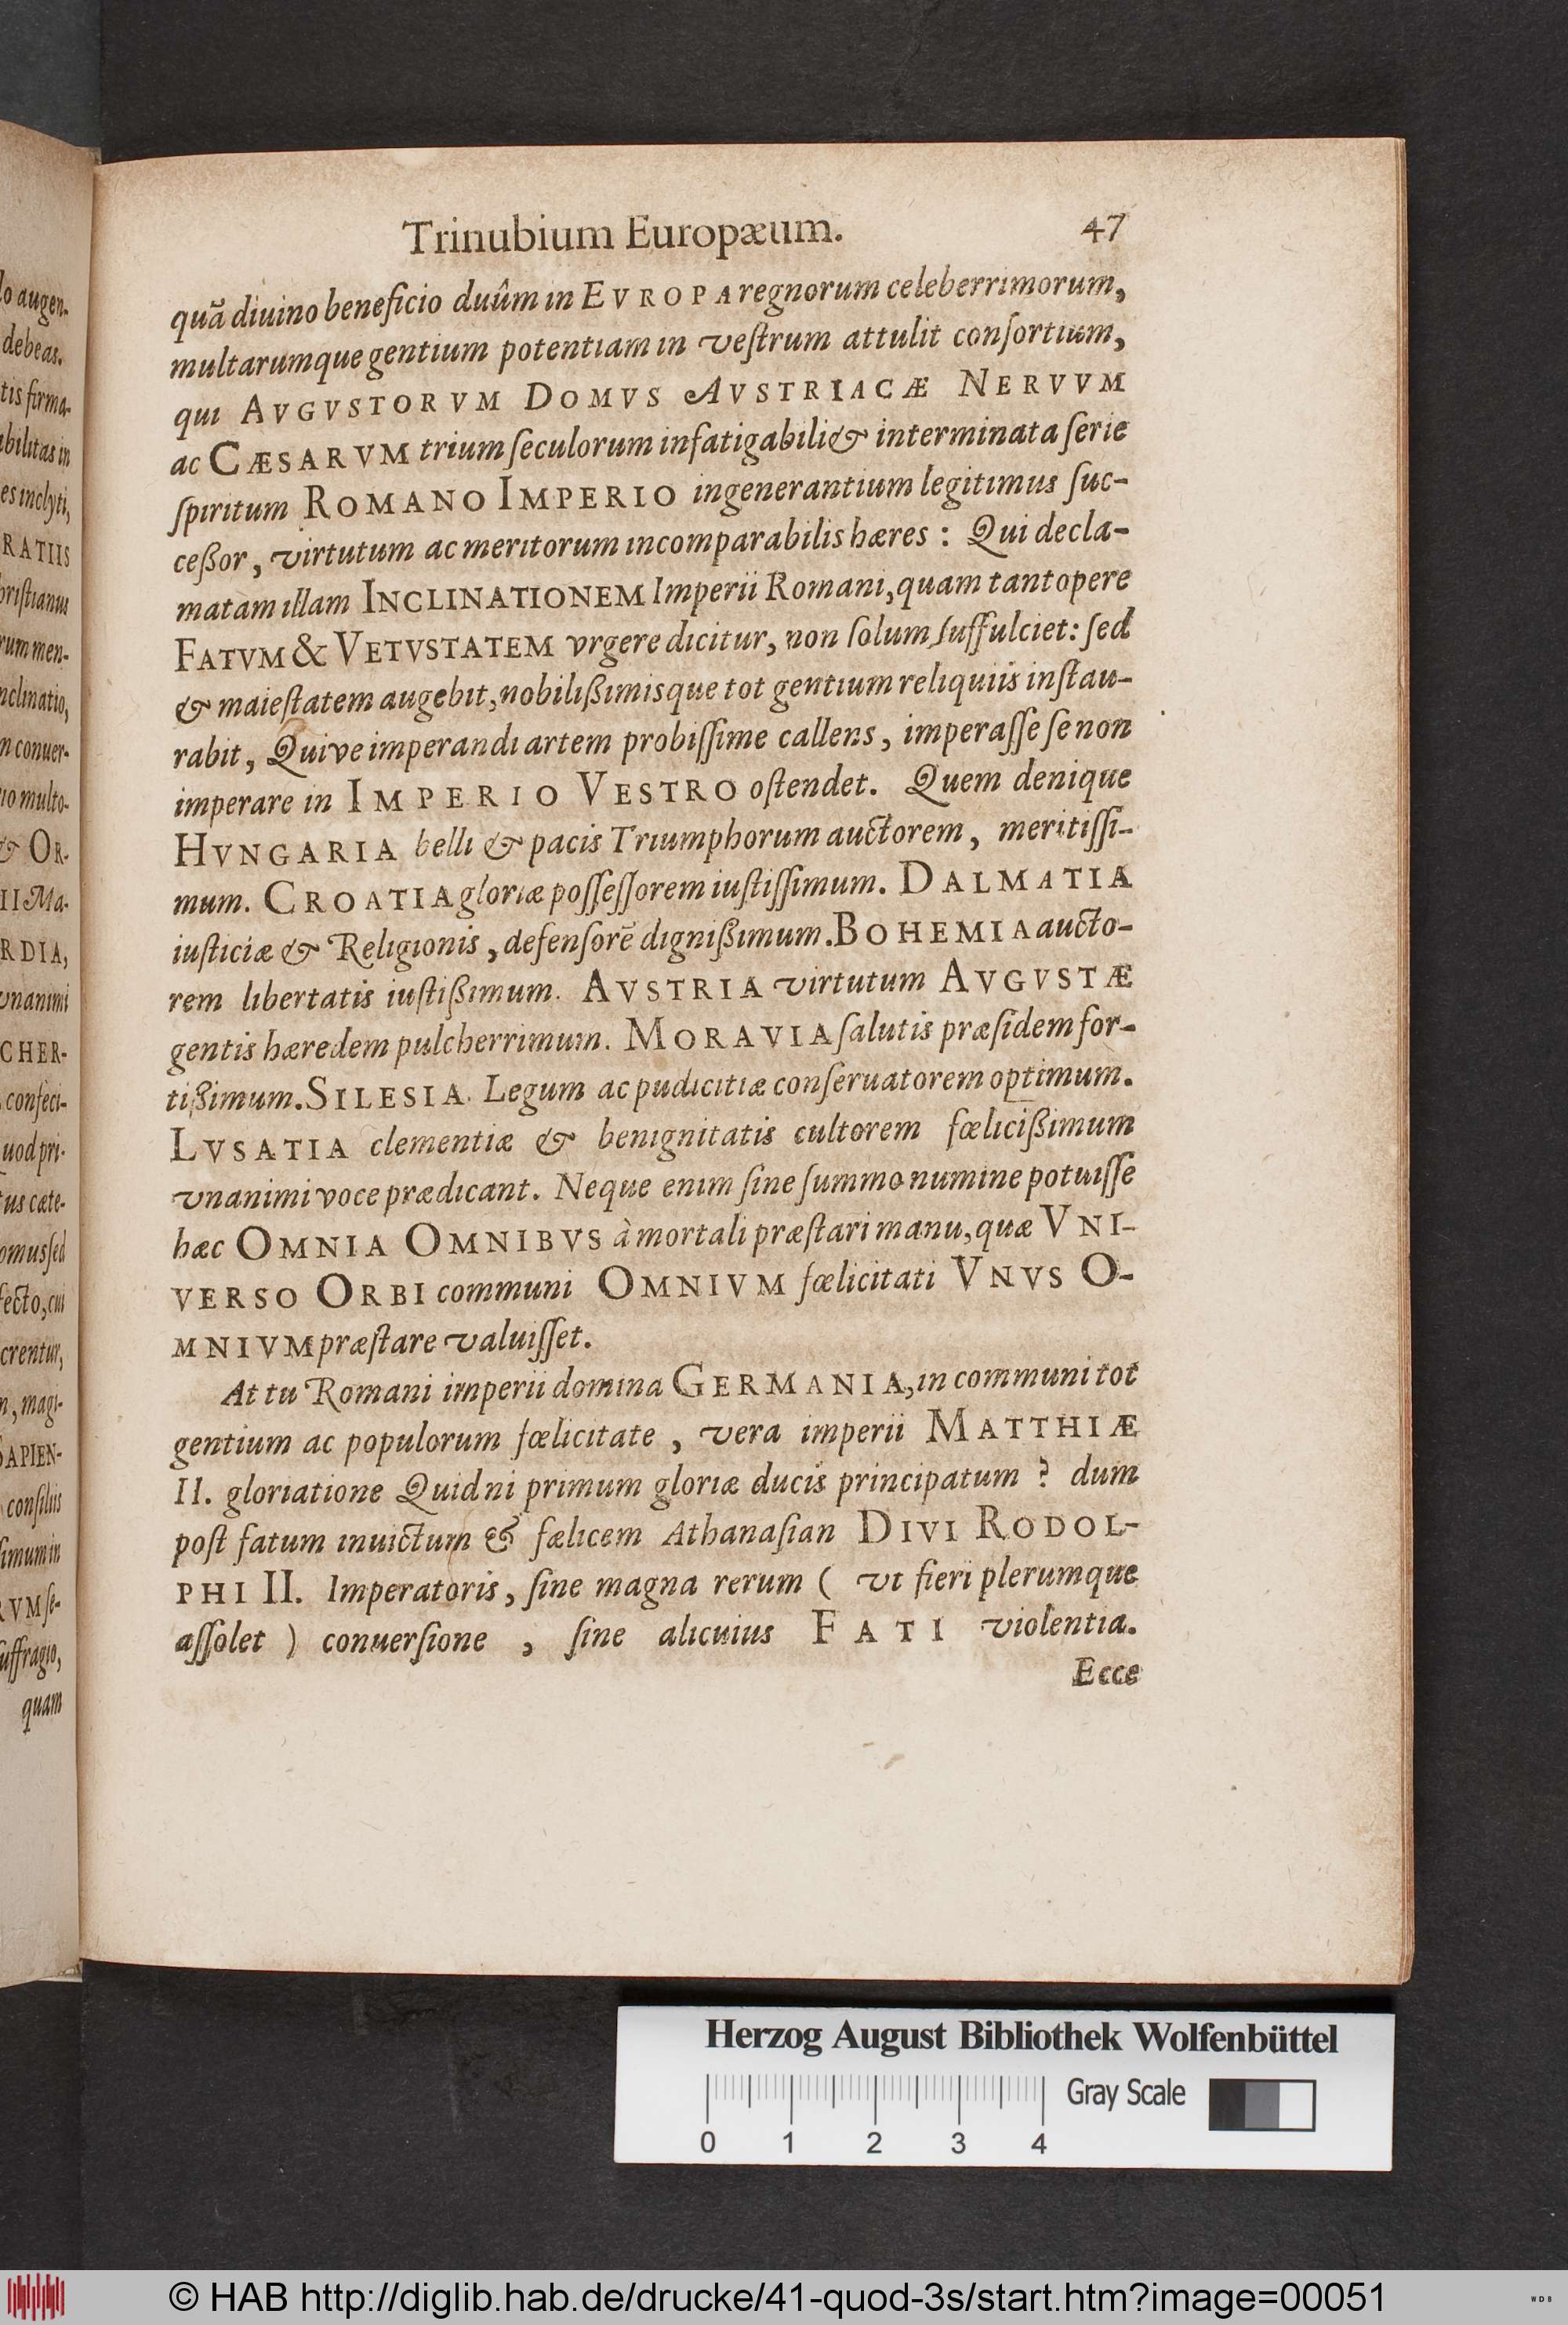 lo augen-
debeas.
tis firma-
abilitas in
es inclyti,
RATIIS
hriſtianus
rum men-
nclinatio,
n conuer-
no multo-
& OR-
II Ma-
RDIA,
vnanimi
CHER-
confeci-
uod pri-
us cæte-
omus ſed
fecto, cui
crentur,
n, magi-
SAPIEN-
conſiliis
ſimum in
RVM ſe-
ſuffragio,
quam
Trinubium Europæum. 47
quā diuino beneficio duûm in EVROPA regnorum celeberrimorum,
multarumque gentium potentiam in veſtrum attulit conſortium,
qui AVGVSTORVM DOMVS AVSTRIACÆ NERVVM
ac CÆSARVM trium ſeculorum infatigabili & interminata ſerie
ſpiritum ROMANO IMPERIO ingenerantium legitimus ſuc-
ceßor, virtutum ac meritorum incomparabilis hæres: Qui decla-
matam illam INCLINATIONEM Imperii Romani, quam tantopere
FATVM & VETVSTATEM vrgere dicitur, non ſolum ſuffulciet: ſed
& maieſtatem augebit, nobilißimisque tot gentium reliquiis inſtau-
rabit, Quive imperandi artem probiſſime callens, imperaſſe ſe non
imperare in IMPERIO VESTRO oſtendet. Quem denique
HVNGARIA belli & pacis Triumphorum auctorem, meritiſſi-
mum. CROATIA gloriæ poſſeſſorem iuſtiſſimum. DALMATIA
iuſticiæ & Religionis, defenſorē dignißimum. BOHEMIA aucto-
rem libertatis iuſtißimum. AVSTRIA virtutum AVGVSTÆ
gentis hæredem pulcherrimum. MORAVIA ſalutis præſidem for-
tißimum. SILESIA. Legum ac pudicitiæ conſeruatorem optimum.
LVSATIA clementiæ & benignitatis cultorem fœlicißimum
vnanimi voce prædicant. Neque enim ſine ſummo numine potuiſſe
hæc OMNIA OMNIBVS à mortali præſtari manu, quæ VNI-
VERSO ORBI communi OMNIVM fœlicitati VNVS O-
MNIVM præſtare valuiſſet.
At tu Romani imperii domina GERMANIA, in communi tot
gentium ac populorum fœlicitate, vera imperii MATTHIÆ
II. gloriatione Quidni primum gloriæ ducis principatum? dum
poſt fatum inuictum & fælicem Athanaſian DIVI RODOL-
PHI II. Imperatoris, ſine magna rerum ( vt fieri plerumque
aſſolet ) conuerſione, ſine alicuius FATI violentia.
Ecce
Herzog August Bibliothek Wolfenbüttel
Gray Scale
0 1 2 3 4
© HAB http://diglib.hab.de/drucke/41-quod-3s/start.htm?image=00051
WDB